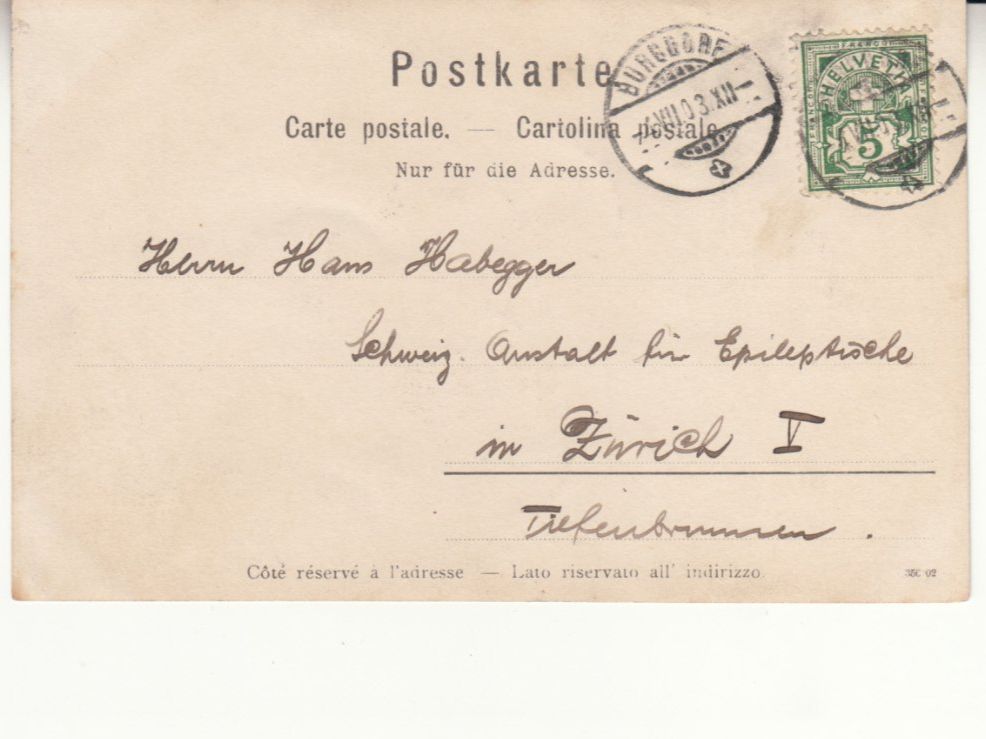 Postkarte
Carte postale. — Cartolina postale
Nur für die Adresse.
BURGDORF
VII.03.XII
FRANCO
HELVETIA
5
Herrn Hans Habegger
Schweiz. Anstalt für Epileptische
in Zürich V
Tiefenbrunnen.
Côté réservé à l'adresse — Lato riservato all' indirizzo.